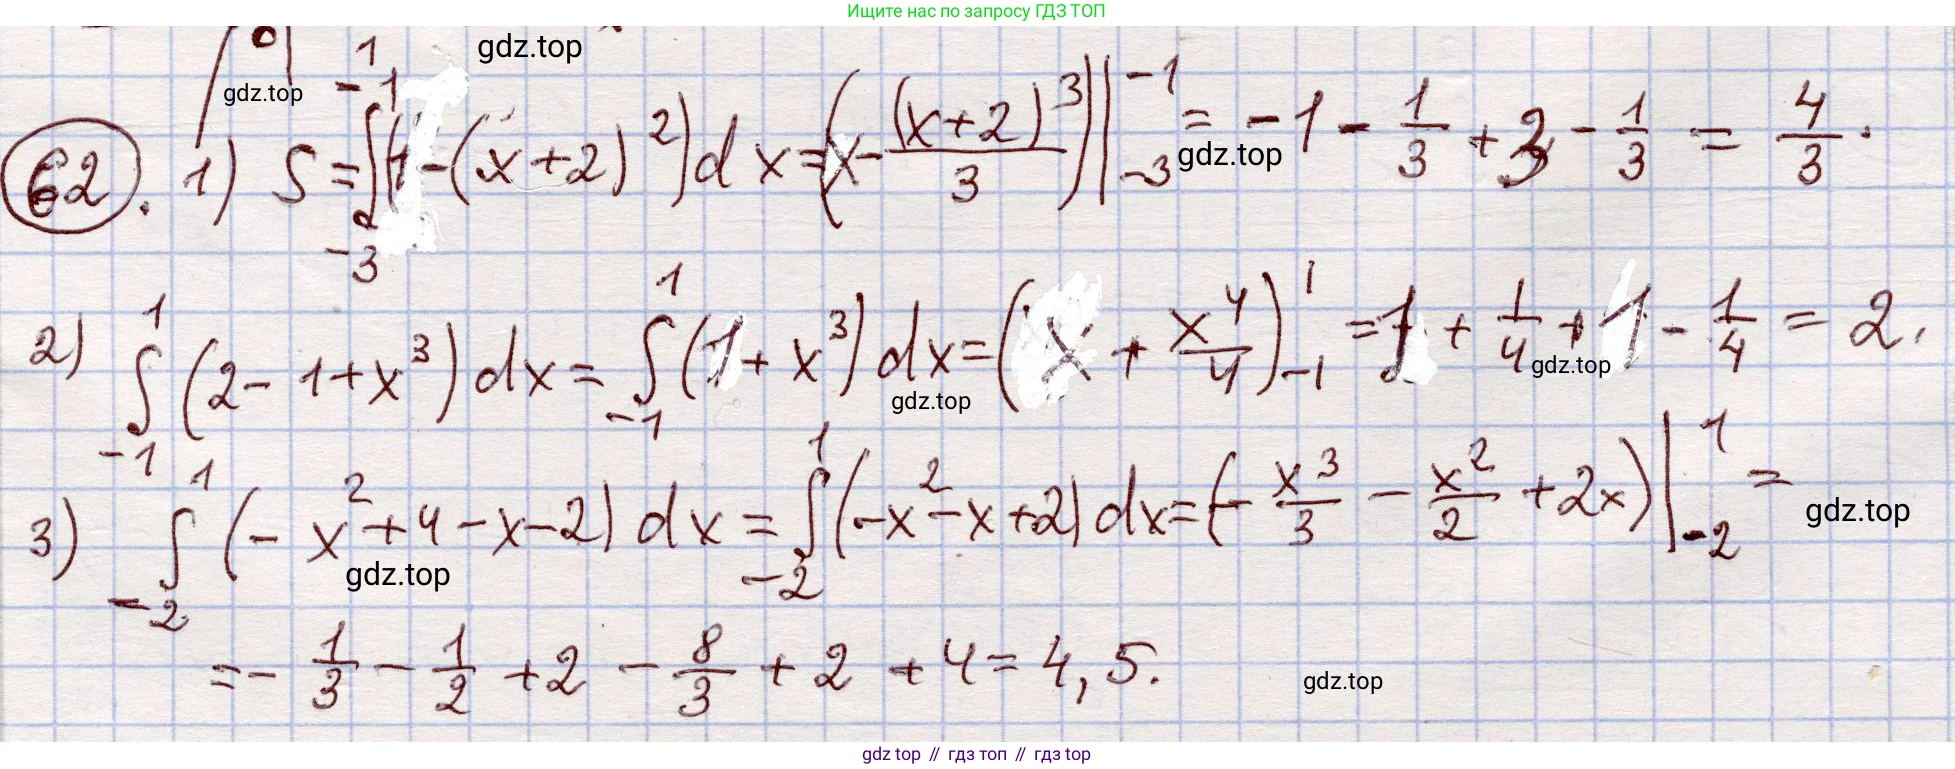 Ищите нас по запросу ГДЗ ТОП
gdz.top
gdz.top
62. 1) S = ∫_{-3}^{-1} (1 - (x+2)^2) dx = (x - (x+2)^3/3)|_{-3}^{-1} = -1 - 1/3 + 3 - 1/3 = 4/3.
gdz.top
2) ∫_{-1}^{1} (2 - 1 + x^3) dx = ∫_{-1}^{1} (1 + x^3) dx = (x + x^4/4)_{-1}^{1} = 1 + 1/4 + 1 - 1/4 = 2.
gdz.top
gdz.top
3) ∫_{-2}^{1} (-x^2 + 4 - x - 2) dx = ∫_{-2}^{1} (-x^2 - x + 2) dx = (-x^3/3 - x^2/2 + 2x)|_{-2}^{1} =
gdz.top
gdz.top
= -1/3 - 1/2 + 2 - 8/3 + 2 + 4 = 4,5.
gdz.top
gdz top // гдз топ // gdz top